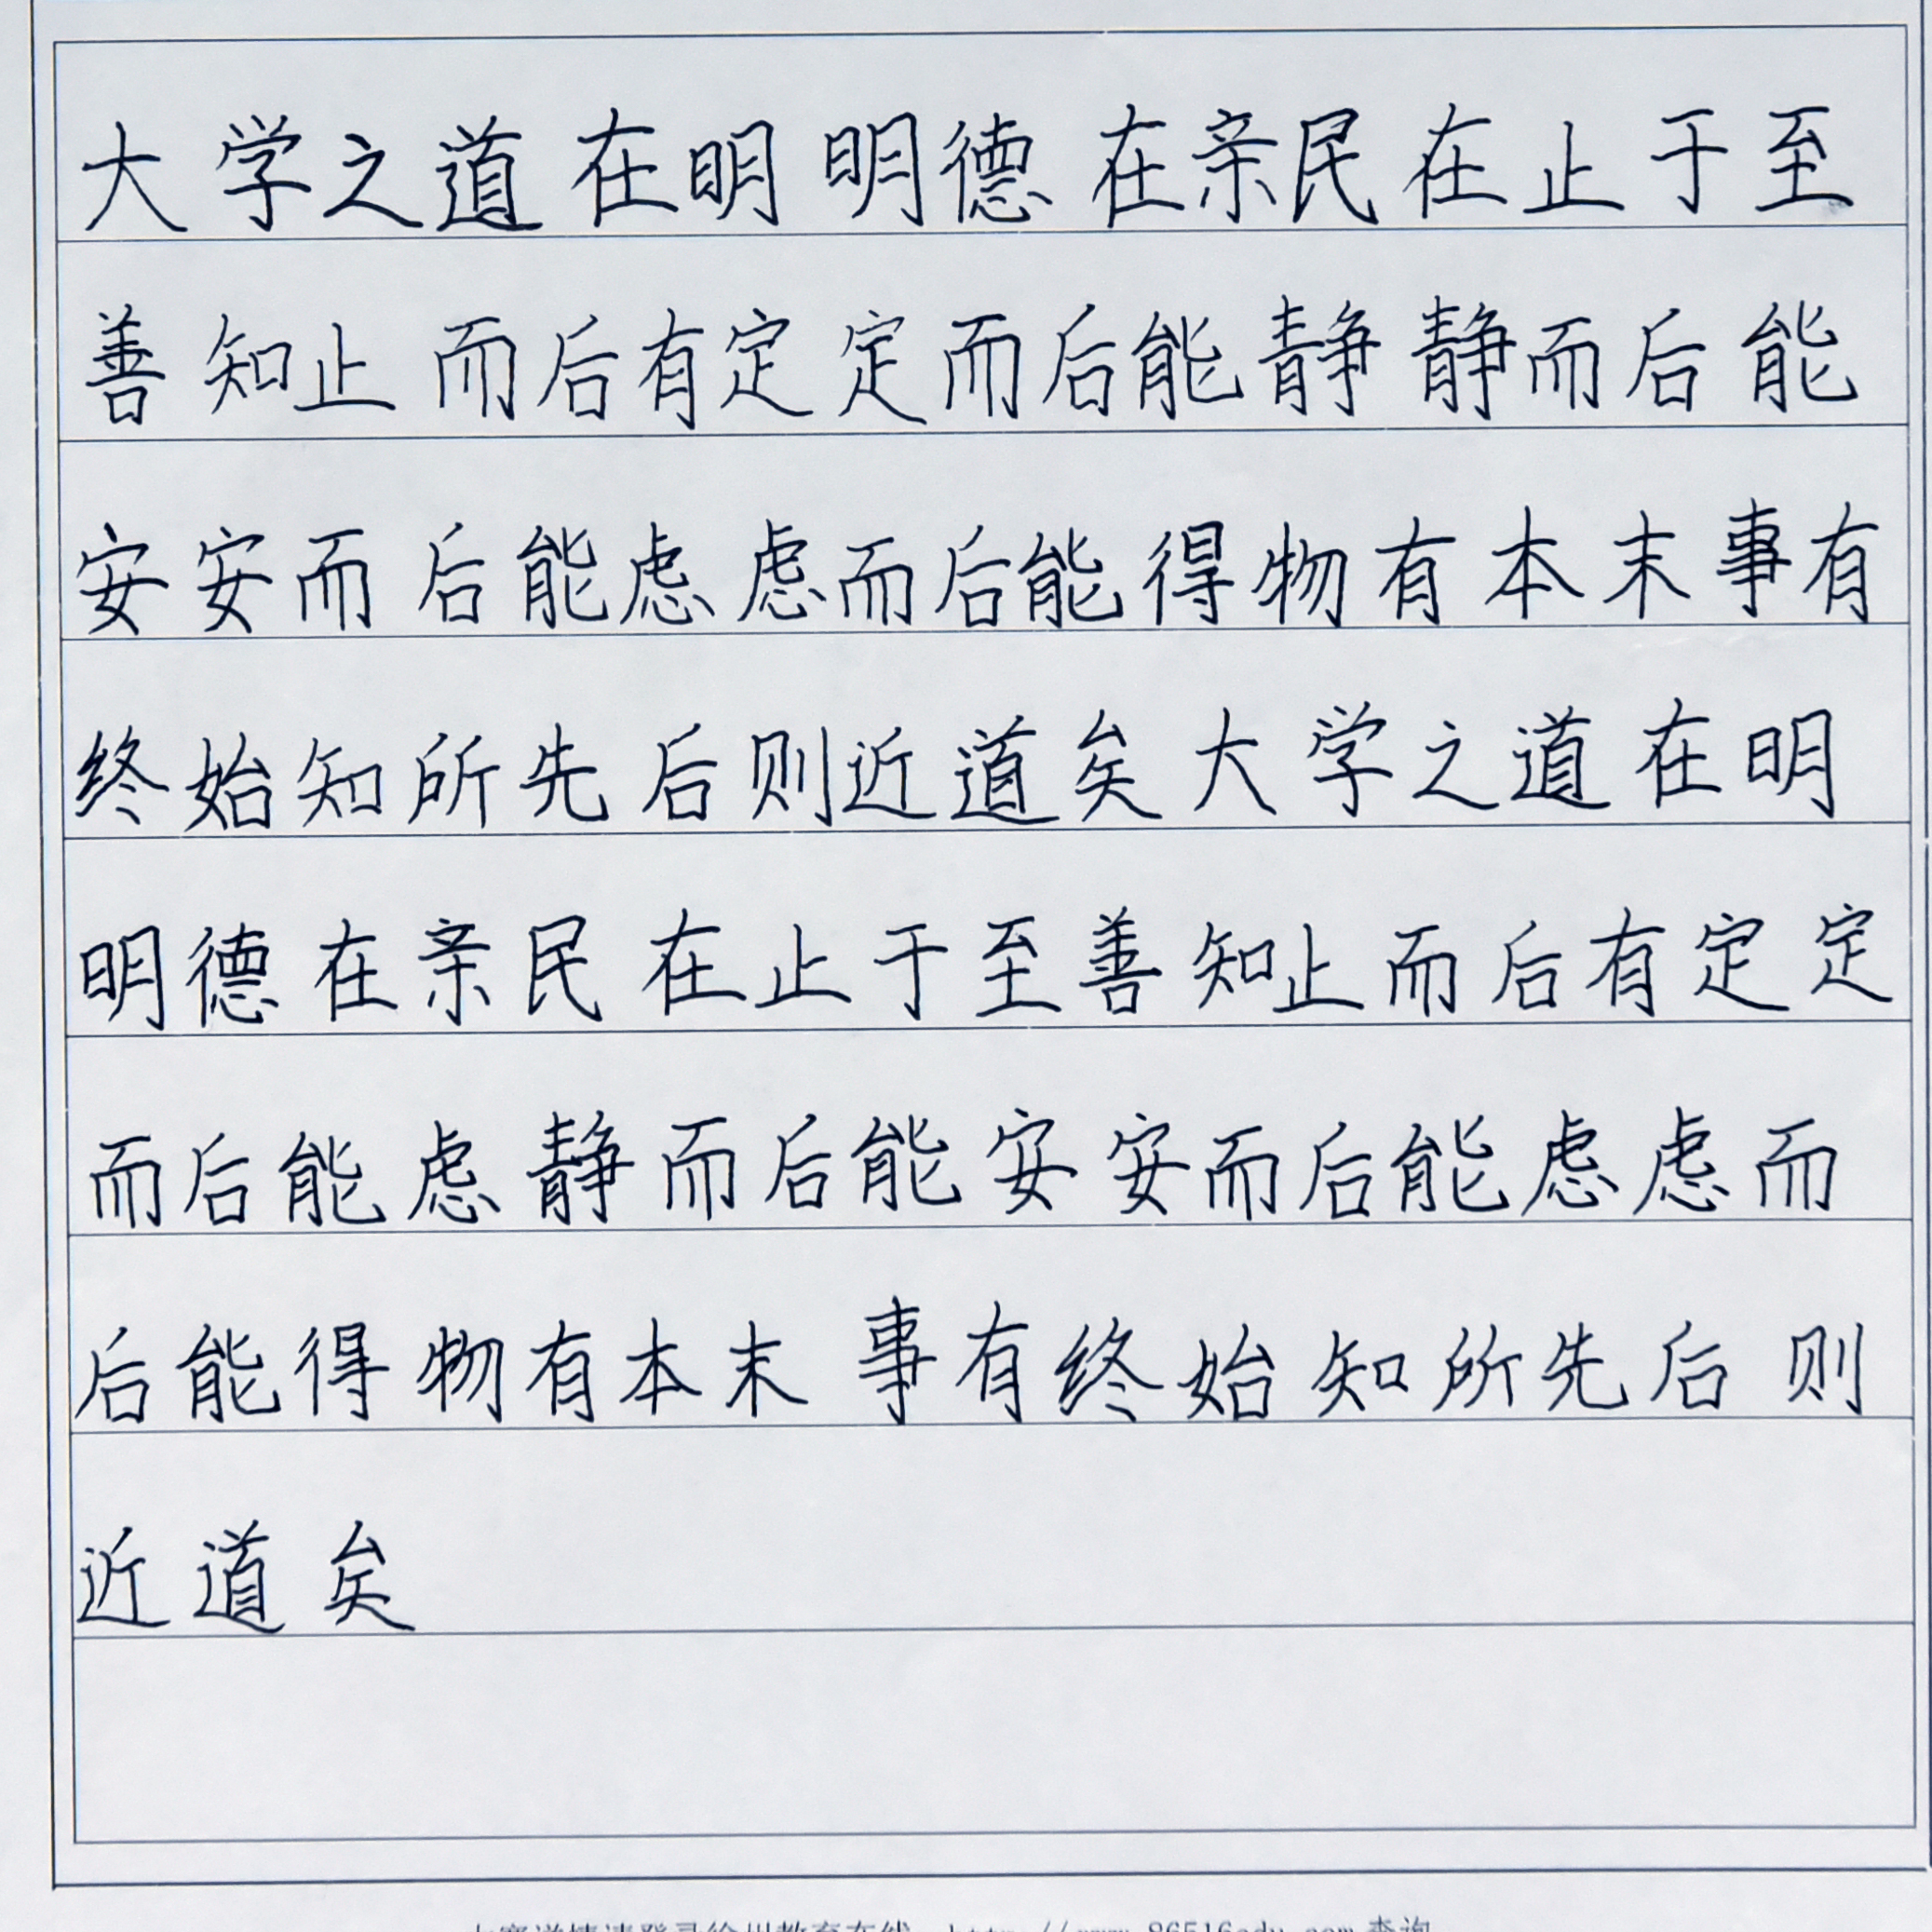 大学之道在明明德在亲民在止于至
善知止而后有定定而后能静静而后能
安安而后能虑虑而后能得物有本末事有
终始知所先后则近道矣大学之道在明
明德在亲民在止于至善知止而后有定定
而后能虑静而后能安安而后能虑虑而
后能得物有本末事有终始知所先后则
近道矣